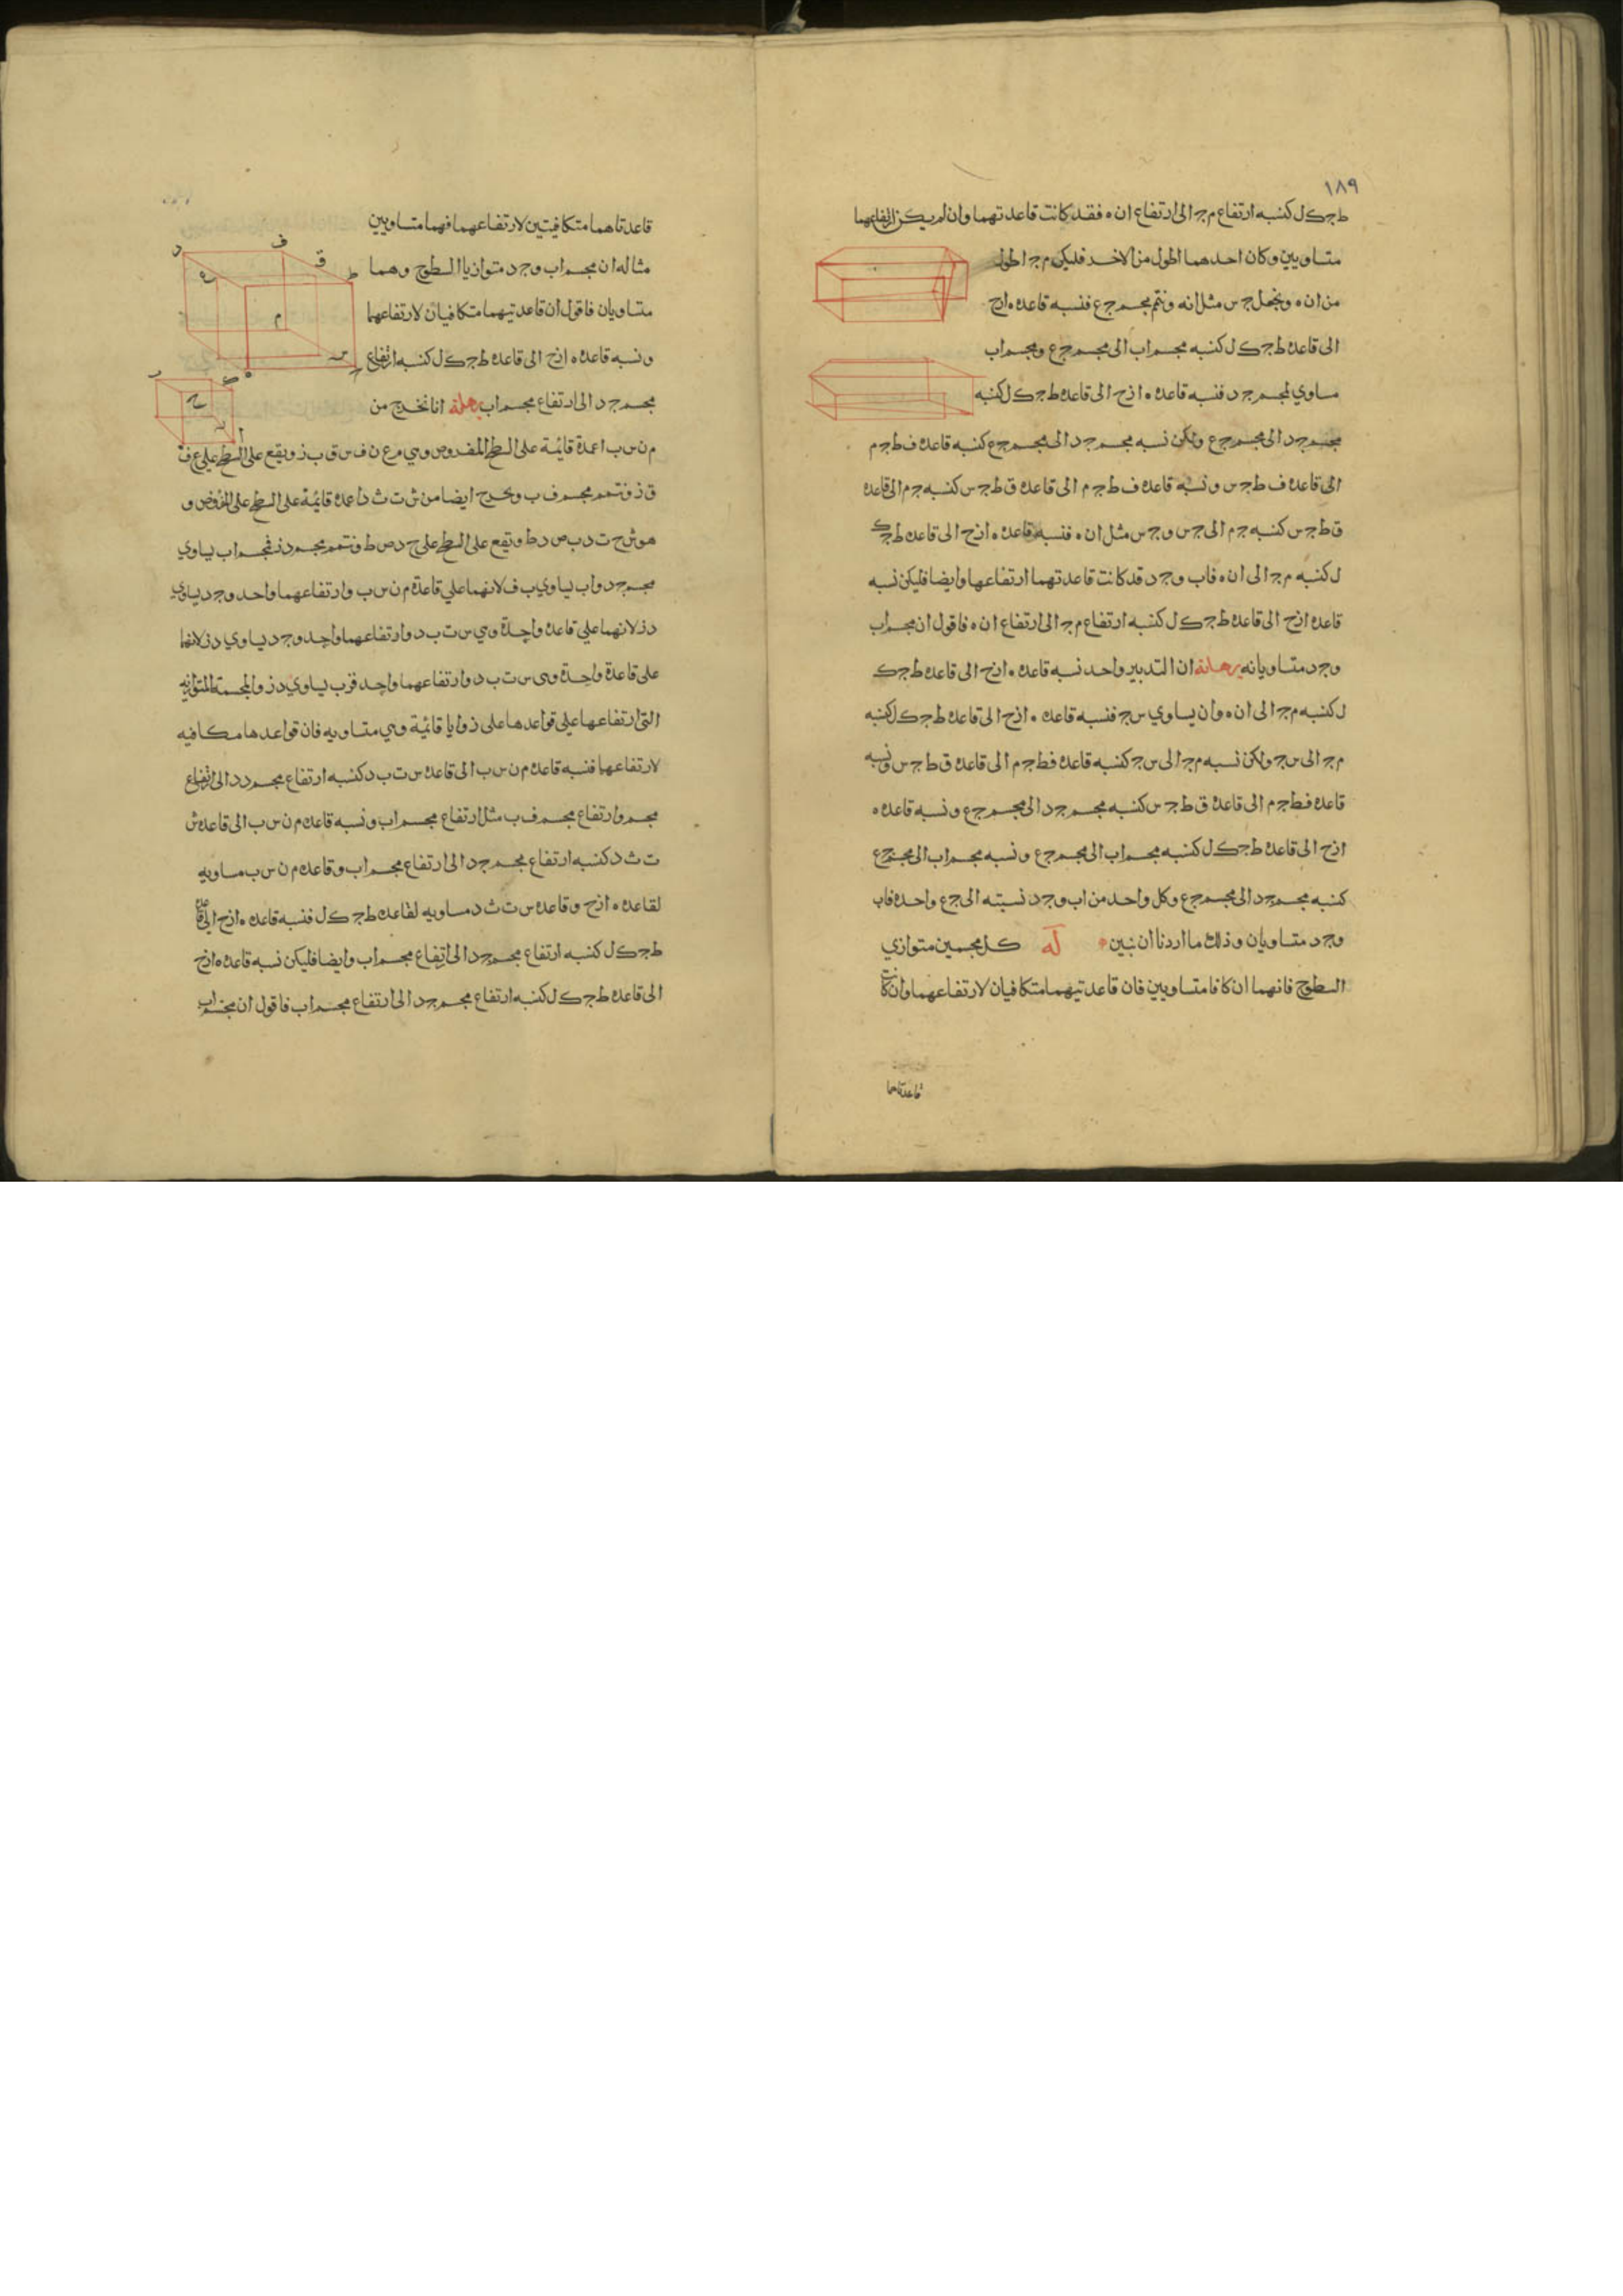 ١٨٩
ط ج ك ل كنسبه ارتفاع م ج الى ارتفاع ان ه فقد كانت قاعدتهما وان لم يكن ارتفاعهما
متساويين وكان احدهما اطول من الاخر فليكن م ج اطول
من ان ه ونجعل ج س مثل انه ونتم مجسم ج ع فنسبه قاعده ه ازح
الى قاعده ط ج ك ل كنسبه مجسم اب الى مجسم ج ع ومجسم اب
مساوي لمجسم ج د فنسبه قاعده ه ازح الى قاعده ط ج ك ل كنسبه
مجسم ج د الى مجسم ج ع ولكن نسبه مجسم ج د الى مجسم ج ع كنسبه قاعده ف ط ج م
الى قاعده ف ط ج س ونسبه قاعده ف ط ج م الى قاعده ق ط ج س كنسبه ج م الى قاعده
ق ط ج س كنسبه ج م الى ج س و ج س مثل ان ه فنسبه قاعده ه ازح الى قاعده ط ج ك
ل كنسبه م ج الى ان ه فاب و ج د قد كانت قاعدتهما ارتفاعها وايضا فليكن نسبه
قاعده ازح الى قاعده ط ج ك ل كنسبه ارتفاع م ج الى ارتفاع ان ه فاقول ان مجسم اب
و ج د متساويانه برهانه ان التدبير واحد نسبه قاعده ه ازح الى قاعده ط ج ك
ل كنسبه م ج الى ان ه وان يساوي س ج فنسبه قاعده ه ازح الى قاعده ط ج ك ل كنسبه
م ج الى س ج ولكن نسبه م ج الى س ج كنسبه قاعده ف ط ج م الى قاعده ق ط ج س ونسبه
قاعده ف ط ج م الى قاعده ق ط ج س كنسبه مجسم ج د الى مجسم ج ع ونسبه قاعده ه
ازح الى قاعده ط ج ك ل كنسبه مجسم اب الى مجسم ج ع ونسبه مجسم اب الى مجسم ج ع
كنسبه مجسم ج د الى مجسم ج ع وكل واحد من اب و ج د نسبته الى ج ع واحده فاب
و ج د متساويان وذلك ما اردنا ان نبين له كل مجسمين متوازي
السطوح فانهما ان كانا متساويين فان قاعدتيهما متكافيان لارتفاعهما وان كانت
قاعدتاهما
قاعدتاهما متكافيتين لارتفاعهما فهما متساويين
مثاله ان مجسم اب و ج د متوازيا السطوح وهما
متساويان فاقول ان قاعدتيهما متكافيان لارتفاعهما
ونسبه قاعده ه ازح الى قاعده ط ج ك ل كنسبه ارتفاع
مجسم ج د الى ارتفاع مجسم اب برهانه انا نخرج من
م ن س ب اعمدة قائمة على السطح المفروض وهي م ع ن ف س ق ب ز ويقع على السطح على ع ف
ق ز ونتمم مجسم ف ب ونخرج ايضا من ش ت ث د اعمده قائمة على السطح على المفروض و
هو ش ح ت د ب ص د ط وتقع على السطح على ح د ص ط ونتمم مجسم د ز فمجسم اب يساوي
مجسم ج د واب يساوي ب ف لانهما على قاعدة م ن س ب وارتفاعهما واحد و ج د يساوي
د ز لانهما على قاعدة واحدة وهي س ت ب د وارتفاعهما واحد و ج د يساوي د ز لانهما
على قاعدة واحدة وهى س ت ب د وارتفاعهما واحد فرب يساوي د ز والمجسمة المتوازيه
التى ارتفاعها على قواعدها على زوايا قائمة وهي متساويه فان قواعدها مكافيه
لارتفاعها فنسبه قاعده م ن س ب الى قاعده س ت ب د كنسبه ارتفاع مجسم د د الى ارتفاع
مجسم وارتفاع مجسم ف ب مثل ارتفاع مجسم اب ونسبه قاعده م ن س ب الى قاعده ش
ت ث د كنسبه ارتفاع مجسم ج د الى ارتفاع مجسم اب وقاعده م ن س ب مساويه
لقاعده ه ازح وقاعده س ت ث د مساويه لقاعده ط ج ك ل فنسبه قاعده ه ازح الى قاعده
ط ج ك ل كنسبه ارتفاع مجسم ج د الى ارتفاع مجسم اب وايضا فليكن نسبه قاعده ه ازح
الى قاعده ط ج ك ل كنسبه ارتفاع مجسم ج د الى ارتفاع مجسم اب فاقول ان مجسم اب